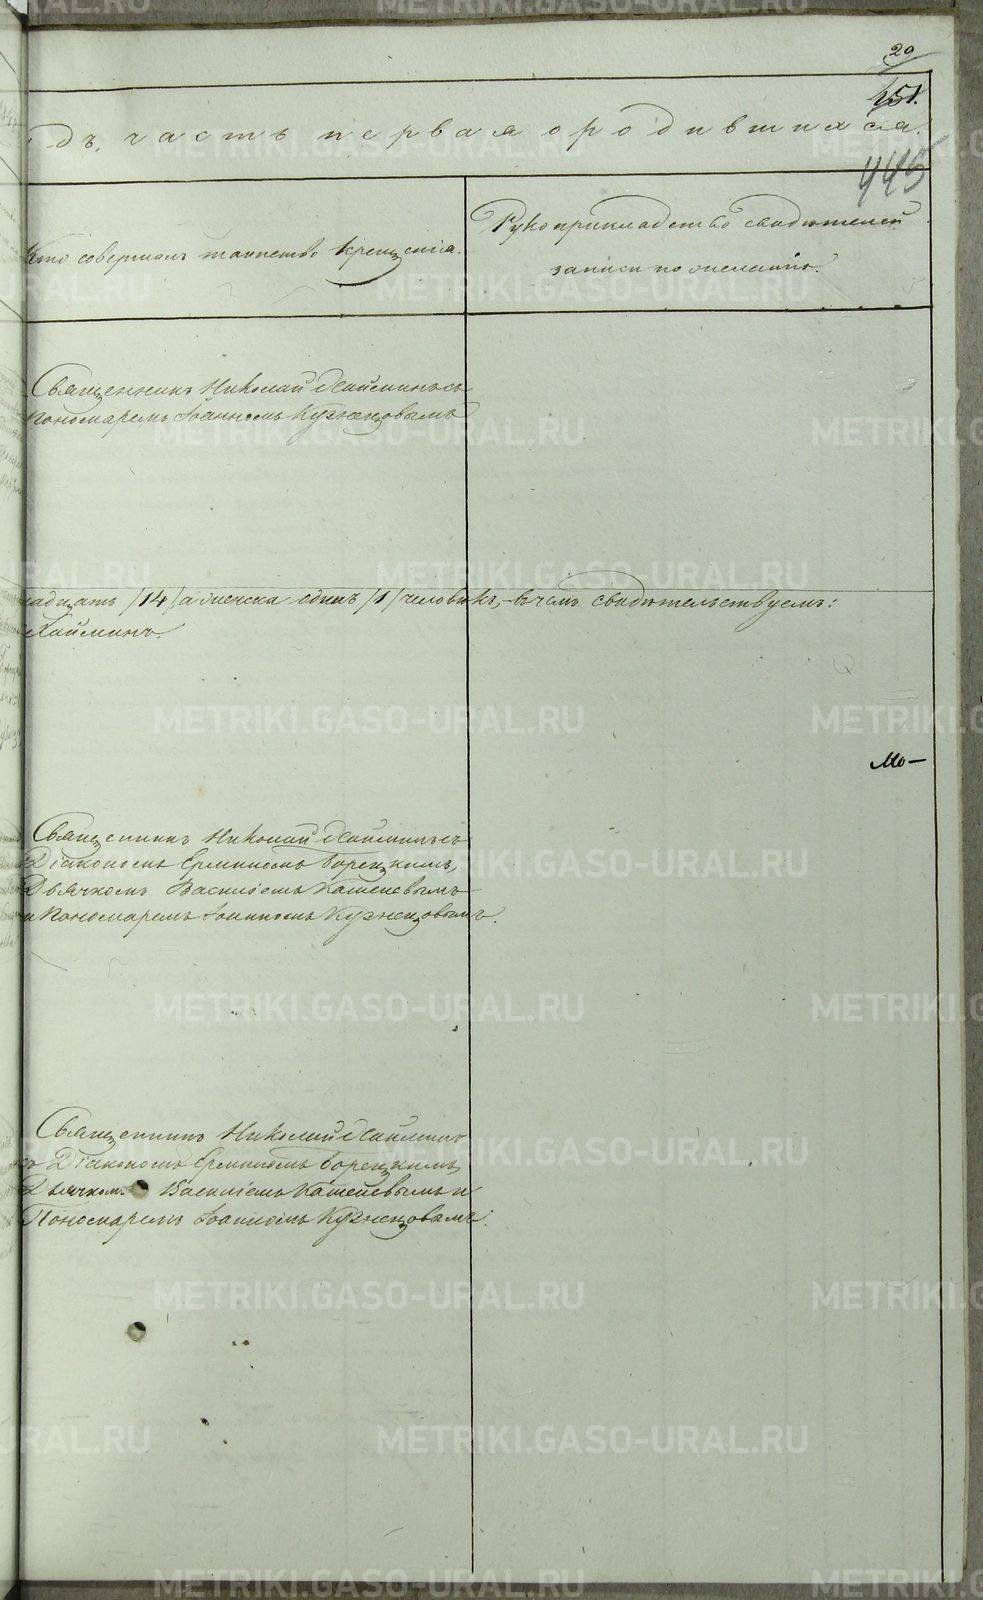 29
451.
дъ, часть первая о родившихся.
445
Кто совершалъ таинство крещенія.
Рукоприкладство свидѣтелей
записи по желанію.
Священникъ Николай Хайминъ съ
Пономаремъ Іоанномъ Кузнецовымъ
надцать /14/ а женска одинъ /1/ человѣкъ, въ чемъ свидѣтельствуемъ:
Хайминъ.
Мо-
Священникъ Николай Хайминъ съ
Діакономъ Ерминомъ Борецкимъ,
Дьячкомъ Василіемъ Кашеневымъ
и Пономаремъ Іоанномъ Кузнецовымъ.
Священникъ Николай Хайминъ
съ Діакономъ Ерминомъ Борецкимъ,
Дьячком Василіемъ Кашеневымъ и
Пономаремъ Іоанномъ Кузнецовымъ.
METRIKI.GASO-URAL.RU